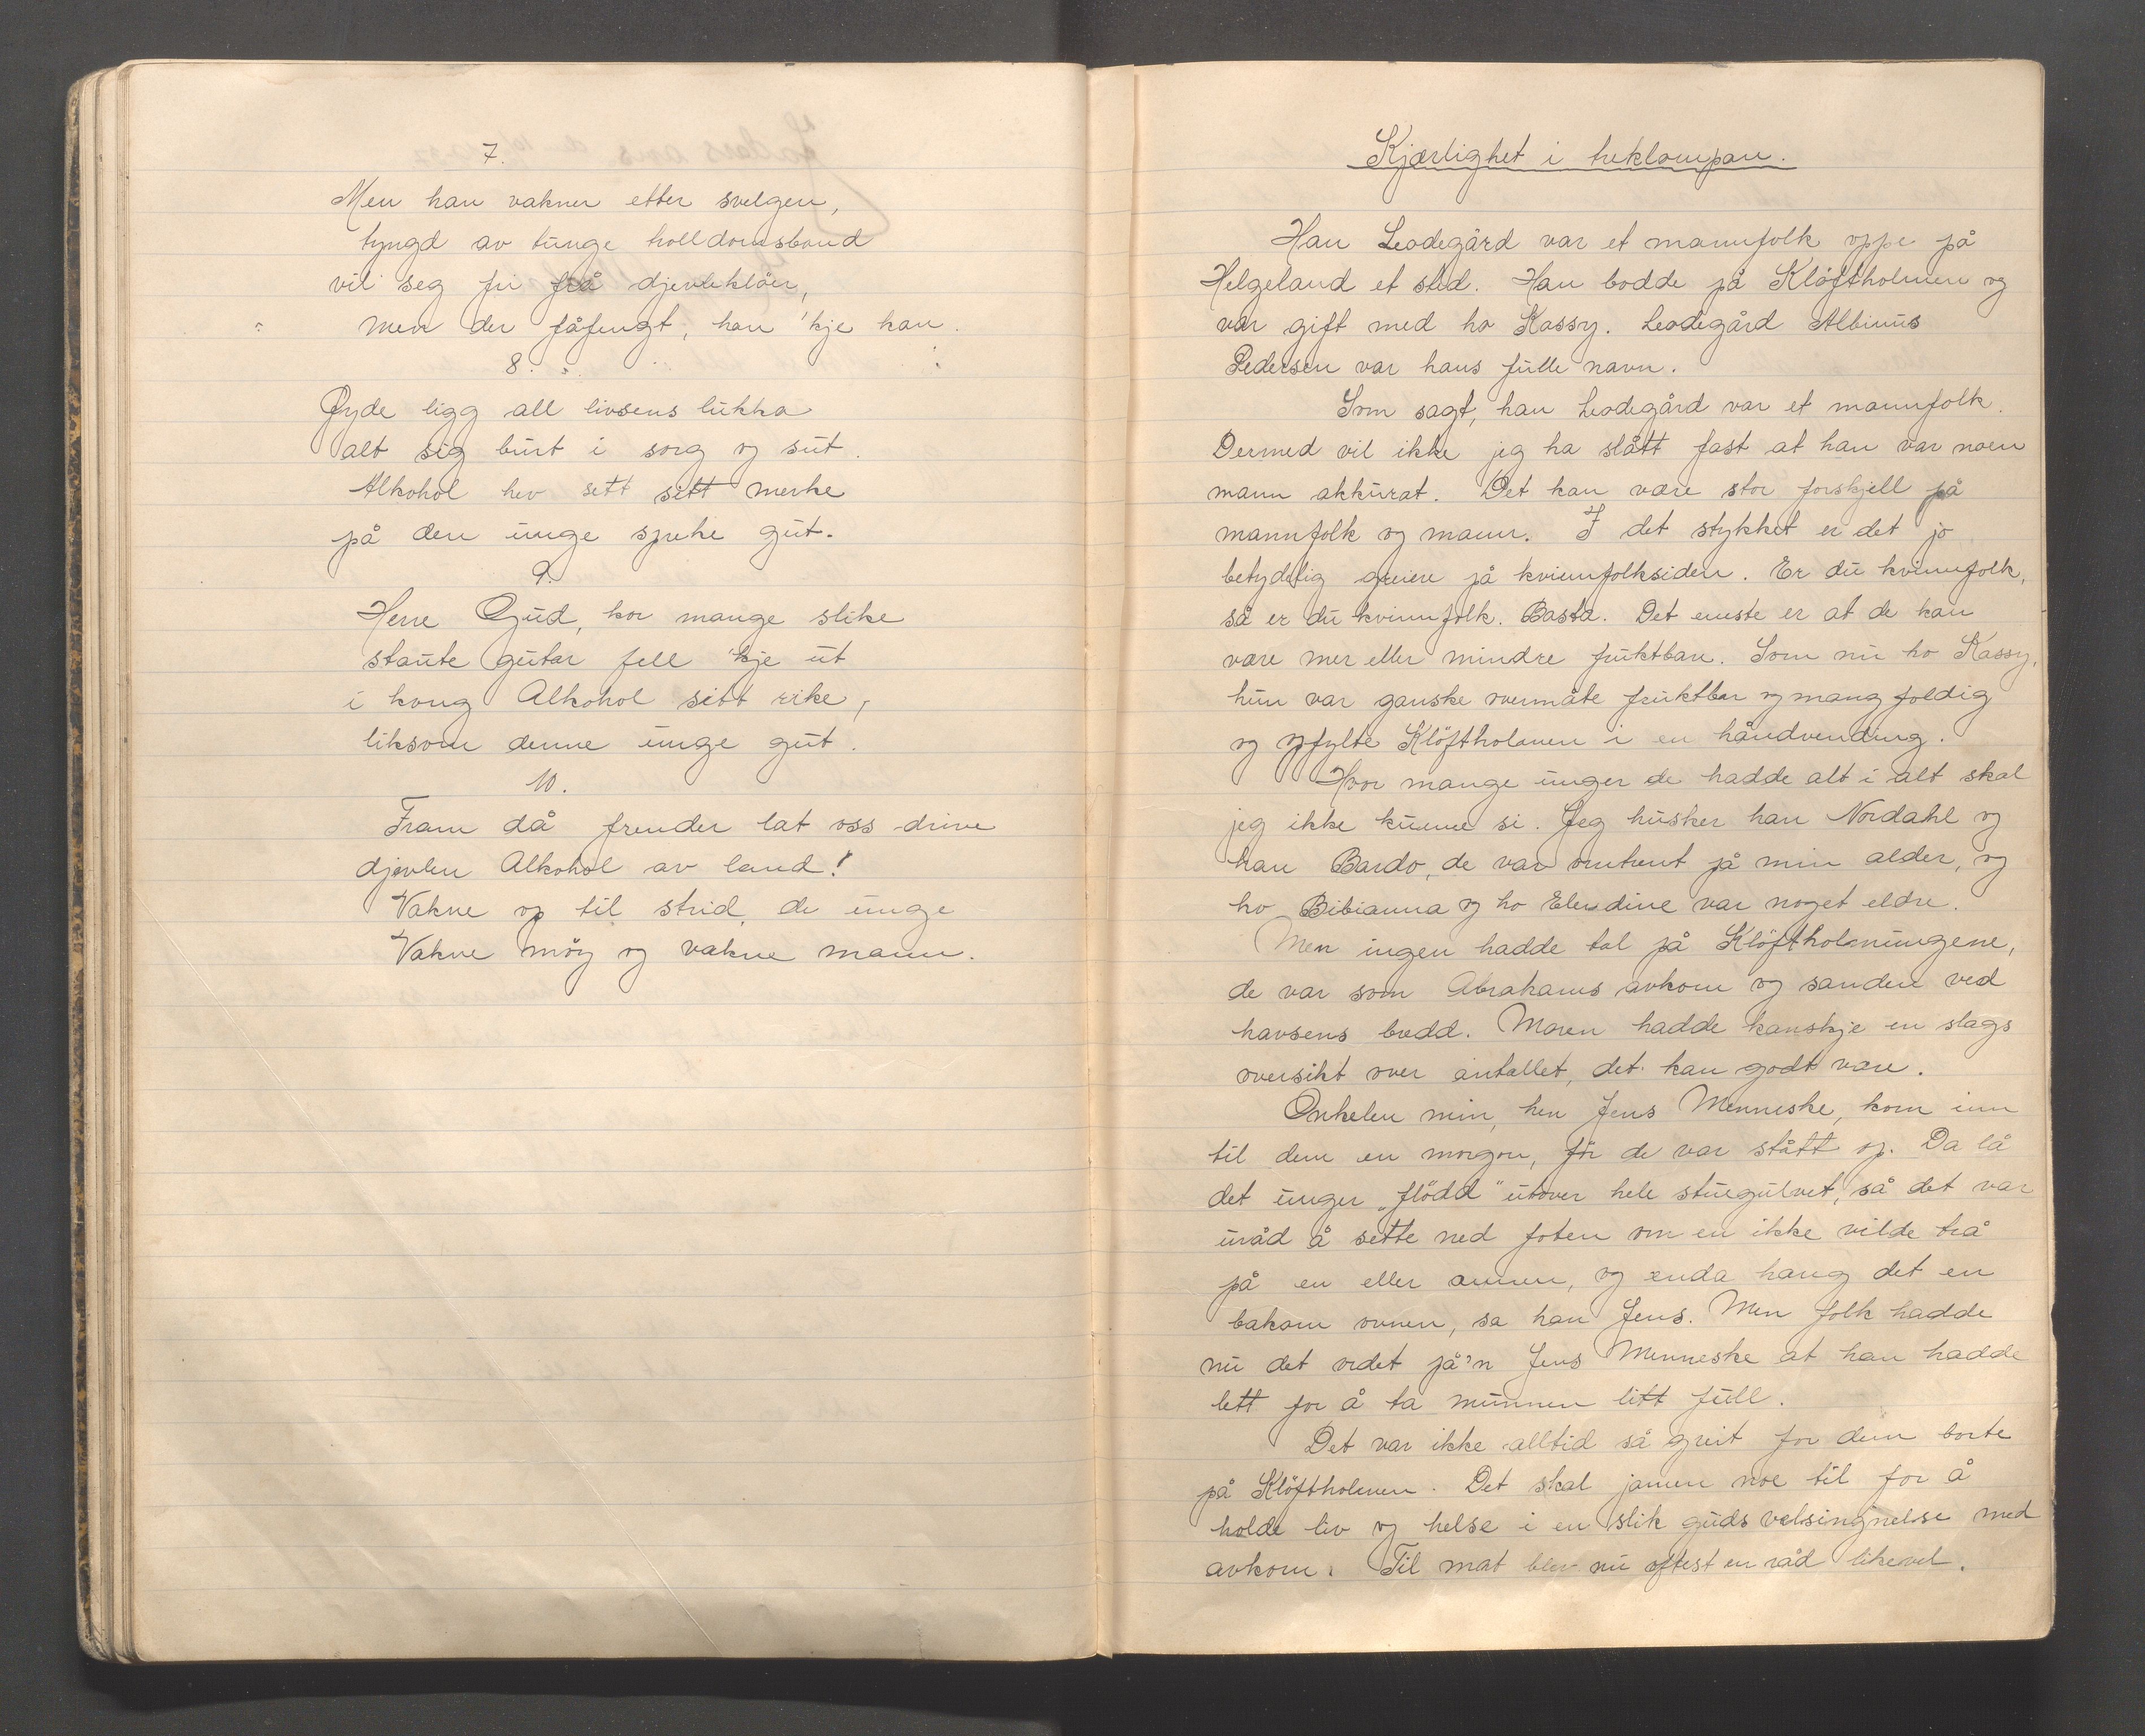 7.
Men han vakner etter svelgen,
tyngd av tunge holldomsband
vil seg fri frå djevleklöer,
men der fåfengt, han 'kje kan.
8.
Öyde ligg all livsens lukka
alt sig burt i sorg og sut.
Alkohol hev sett sitt merke
på den unge spreke gut.
9.
Herre Gud, kor mange slike
staute gutar fell 'kje ut
i kong Alkohol sitt rike,
liksom denne unge gut.
10.
Fram då frender lat oss drive
djevlen Alkohol av land!
Vakne op til strid, de unge
Vakne möy og vakne mann.
Kjærlighet i treklampan.
Han Leodegård var et mannfolk oppe på
Helgeland et sted. Han bodde på Klöftholmen og
var gift med ho Kassy. Leodegård Albinus
Pedersen var hans fulle navn.
Som sagt, han Leodegård var et mannfolk.
Dermed vil ikke jeg ha slått fast at han var noen
mann akkurat. Det kan være stor forskjell på
mannfolk og mann. I det stykket er det jo
betydelig greiere på kvinnfolksiden. Er du kvinnfolk,
så er du kvinnfolk. Basta. Det eneste er at de kan
være mer eller mindre fruktbare. Som nu ho Kassy,
hun var ganske overmåte fruktbar og mangfoldig
og opfylte Klöftholmen i en håndvending.
Hvor mange unger de hadde alt i alt skal
jeg ikke kunne si. Jeg husker han Nordahl og
han Bardo, de var omtrent på min alder, og
ho Bibianna og ho Elendine var noget eldre.
Men ingen hadde tal på Klöftholmungene,
de var som Abrahams avkom og sanden ved
havsens bredd. Moren hadde kanskje en slags
oversikt over antallet, det kan godt være.
Onkelen min, hen Jens Menneske, kom inn
til dem en morgon, för de var stått op. Da lå
det unger „flödd" utover hele stuegulvet, så det var
uråd å sette ned foten om en ikke vilde trå
på en eller annen, og enda hang det en
bakom ovnen, sa han Jens. Men folk hadde
nu det ordet på'n Jens Menneske at han hadde
lett for å ta munnen litt full.
Det var ikke alltid så greit for dem borte
på Klöftholmen. Det skal jamen noe til for å
holde liv og helse i en slik guds velsingnelse med
avkom. Til mat blev nu oftest en råd likevel.